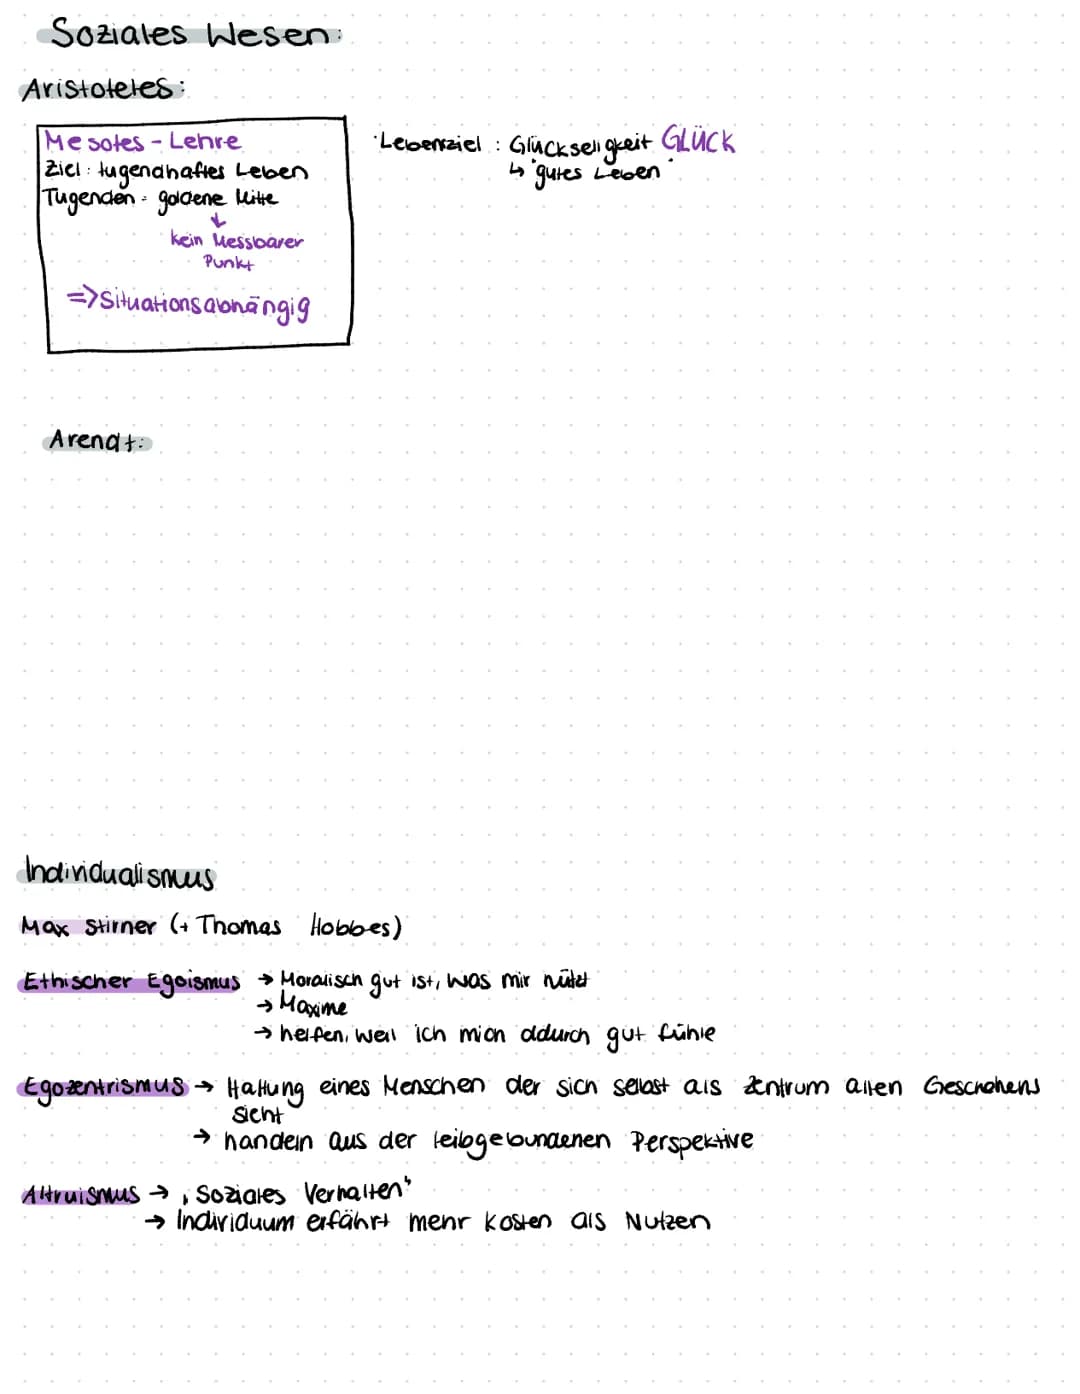 Soziales Wesen:
Aristoteles:
Mesotes - Lehre
Ziel: tugendhaftes Leben
Tugenden = goldene Mitte
↓
kein Messbarer
Punkt
=> Situationsabhängig
· Lebensziel : Glückseligkeit GLÜCK
↳ "gutes Leben"
Arendt:
Individualismus
Max Stirner (+ Thomas Hobbes)
Ethischer Egoismus → Moralisch gut ist, was mir nützt
→ Maxime
→ helfen, weil ich mich ddurch gut fühle
Egozentrismus → Haltung eines Menschen der sich selbst als Zentrum allen Geschehens
sieht
→ handeln aus der leibgebundenen Perspektive
Altruismus → "Soziales Verhalten"
→ Individuum erfährt mehr Kosten als Nutzen